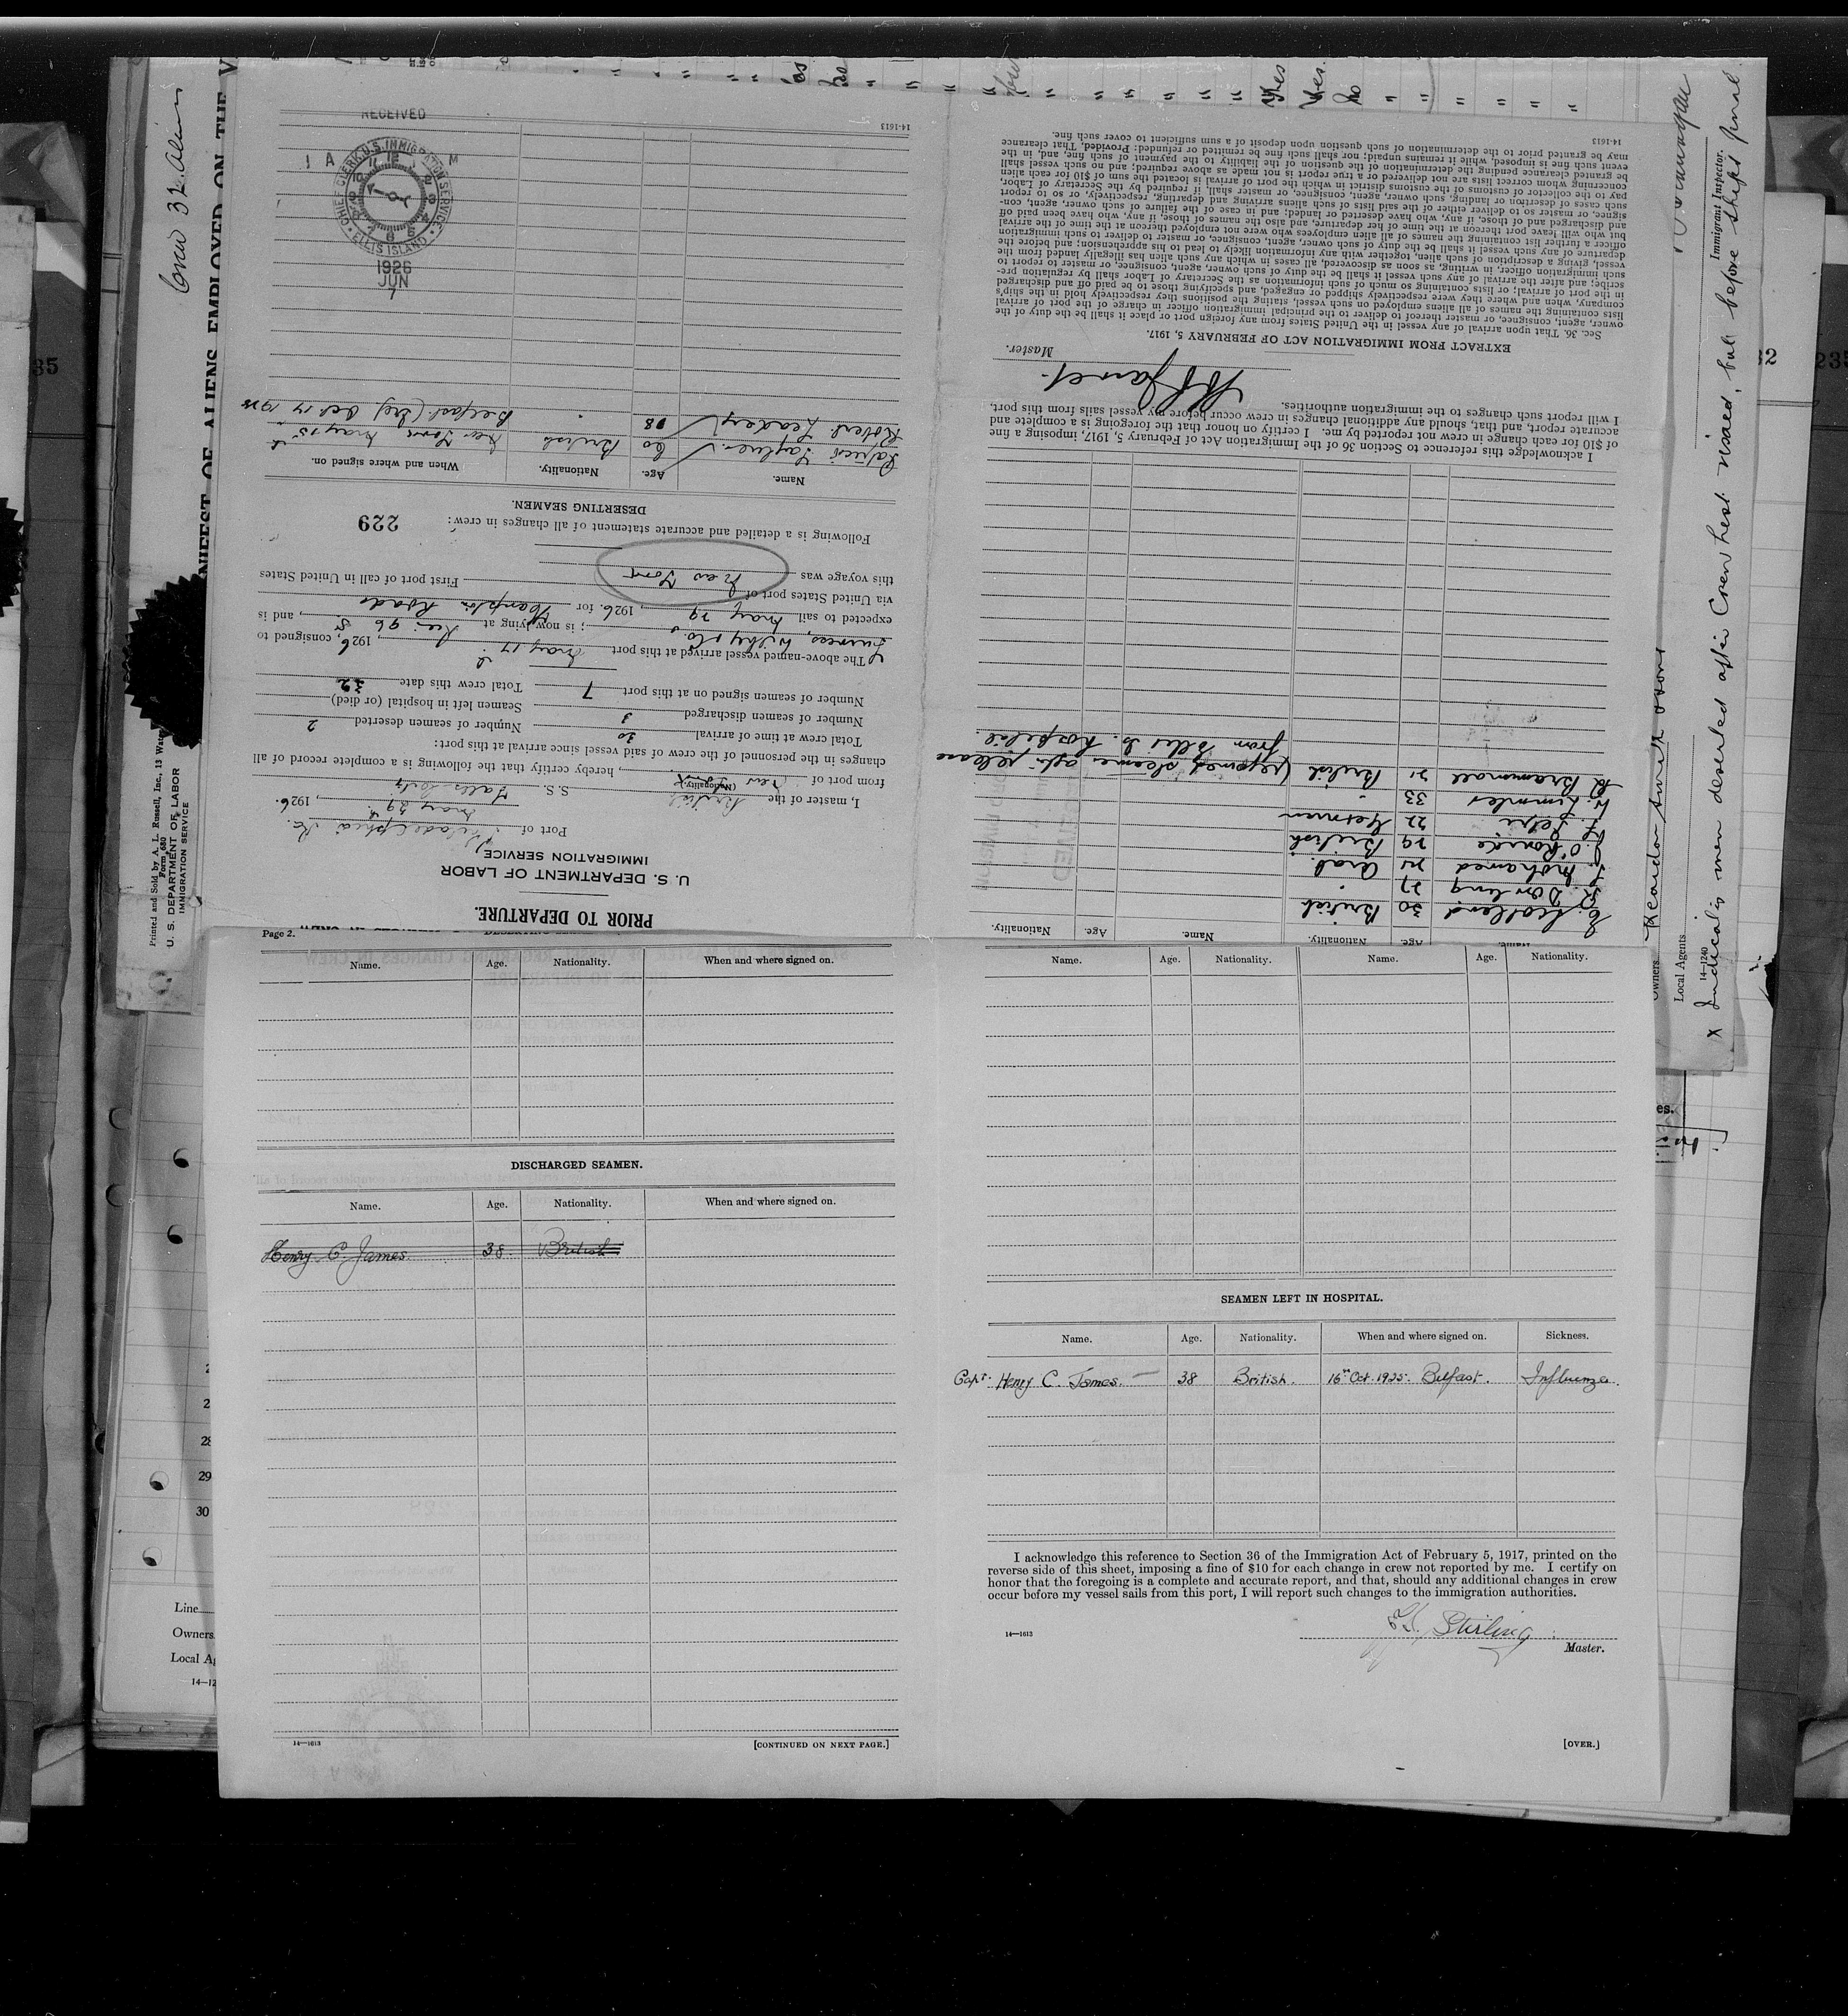 Crew 32. Aliens
NIFEST OF ALIENS EMPLOYED ON THE V
Printed and Sold by A. L. Russell, Inc., 13 Wate
Form 680
U. S. DEPARTMENT OF LABOR
IMMIGRATION SERVICE
35
PRIOR TO DEPARTURE.
U. S. DEPARTMENT OF LABOR
IMMIGRATION SERVICE
Port of Philadelphia Pa.
May 29, 1926.
I, master of the British S. S. Valls City
(Nationality.)
from port of New, hereby certify that the following is a complete record of all
changes in the personnel of the crew of said vessel since arrival at this port:
Total crew at time of arrival 30 Number of seamen deserted 2
Number of seamen discharged 3 Seamen left in hospital (or died)
Number of seamen signed on at this port 7 Total crew this date 32
The above-named vessel arrived at this port May 17, 1926, consigned to
Furness, Withy & Co.; is now lying at Pier 96 S, and is
expected to sail May 29, 1926. for Hampton Roads
via United States port of First port of call in United States
this voyage was New York
Following is a detailed and accurate statement of all changes in crew:
229
DESERTING SEAMEN.
Name. Age. Nationality. When and where signed on.
60 British New York, May 15
Robert Leader 28 " Belfast (Ire) Oct 17 1925
14-1613
RECEIVED
CHIEF CLERK U.S. IMMIGRATION SERVICE
ELLIS ISLAND
1926
JUN
7
Name. Age. Nationality. Name. Age. Nationality.
30 British
F. Dowling 27 "
Mohamed Arab.
O'Rourke 29 British
22 German
W. Simmles 33 "
R Brammall 21 British (rejoined steamer after release
from Ellis Is. hospital.
I acknowledge this reference to Section 36 of the Immigration Act of February 5, 1917, imposing a fine
of $10 for each change in crew not reported by me. I certify on honor that the foregoing is a complete and
accurate report, and that, should any additional changes in crew occur before my vessel sails from this port,
I will report such changes to the immigration authorities.
Master.
EXTRACT FROM IMMIGRATION ACT OF FEBRUARY 5, 1917.
Sec. 36. That upon arrival of any vessel in the United States from any foreign port or place it shall be the duty of the
owner, agent, consignee, or master thereof to deliver to the principal immigration officer in charge of the port of arrival
lists containing the names of all aliens employed on such vessel, stating the positions they respectively hold in the ship's
company, when and where they were respectively shipped or engaged, and specifying those to be paid off and discharged
in the port of arrival; or lists containing so much of such information as the Secretary of Labor shall by regulation pre-
scribe; and after the arrival of any such vessel it shall be the duty of such owner, agent, consignee, or master to report to
such immigration officer, in writing, as soon as discovered, all cases in which any such alien has illegally landed from the
vessel, giving a description of such alien, together with any information likely to lead to his apprehension; and before the
departure of any such vessel it shall be the duty of such owner, agent, consignee, or master to deliver to such immigration
officer a further list containing the names of all alien employees who were not employed thereon at the time of the arrival
but who will leave port thereon at the time of her departure, and also the names of those, if any, who have been paid off
and discharged and of those, if any, who have deserted or landed; and in case of the failure of such owner, agent, con-
signee, or master so to deliver either of the said lists of such aliens arriving and departing, respectively, or so to report
such cases of desertion or landing, such owner, agent, consignee, or master shall, if required by the Secretary of Labor,
pay to the collector of customs of the customs district in which the port of arrival is located the sum of $10 for each alien
concerning whom correct lists are not delivered or a true report is not made as above required; and no such vessel shall
be granted clearance pending the determination of the question of the liability to the payment of such fine, and, in the
event such fine is imposed, while it remains unpaid; nor shall such fine be remitted or refunded: Provided, That clearance
may be granted prior to the determination of such question upon deposit of a sum sufficient to cover such fine.
14-1613
Yes
Yes.
No
Immigrant Inspector.
Reardon Smith & Sons
Owners
Local Agents
14-1240
x Indicates men deserted after Crew list visaed, but before ships final
32
235
es.
Page 2.
Name. Age. Nationality. When and where signed on.
DISCHARGED SEAMEN.
Name. Age. Nationality. When and where signed on.
Henry C. James. 38. British
14—1613
[CONTINUED ON NEXT PAGE.]
Name. Age. Nationality. Name. Age. Nationality.
SEAMEN LEFT IN HOSPITAL.
Name. Age. Nationality. When and where signed on. Sickness.
Capt. Henry C. James. 38 British. 16th Oct. 1925. Belfast. Influenza.
I acknowledge this reference to Section 36 of the Immigration Act of February 5, 1917, printed on the
reverse side of this sheet, imposing a fine of $10 for each change in crew not reported by me. I certify on
honor that the foregoing is a complete and accurate report, and that, should any additional changes in crew
occur before my vessel sails from this port, I will report such changes to the immigration authorities.
Stirling
Master.
14—1613
[OVER.]
28
29
30
Line
Owners
Local Ag
14-12